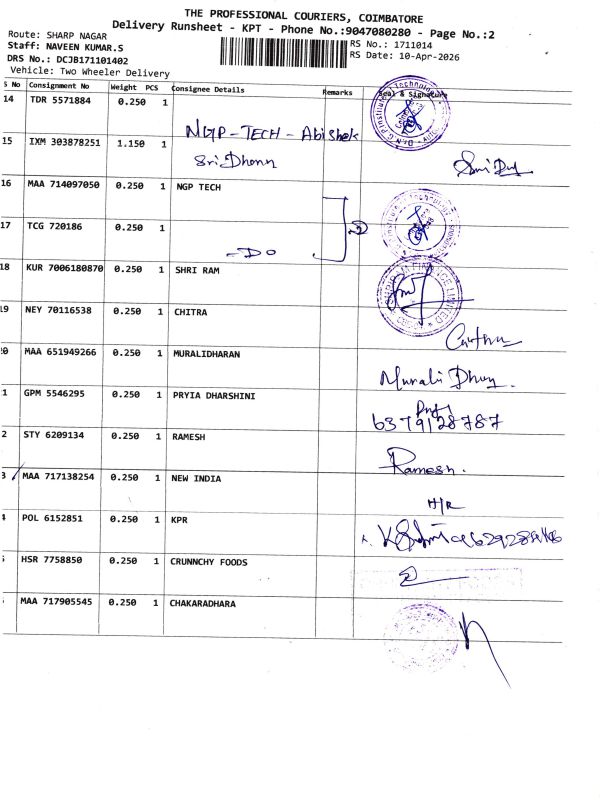 THE PROFESSIONAL COURIERS, COIMBATORE
Delivery Runsheet - KPT - Phone No.:9047080280 - Page No.:2
Route: SHARP NAGAR
Staff: NAVEEN KUMAR.S
RS No.: 1711014
DRS No.: DCJB171101402
RS Date: 10-Apr-2026
Vehicle: Two Wheeler Delivery
S No Consignment No Weight PCS Consignee Details Remarks Seal & Signature
14 TDR 5571884 0.250 1
NGP-TECH-Abishek
15 IXM 303878251 1.150 1 SriDhann
16 MAA 714097050 0.250 1 NGP TECH
17 TCG 720186 0.250 1
-DO
18 KUR 7006180870 0.250 1 SHRI RAM
19 NEY 70116538 0.250 1 CHITRA
20 MAA 651949266 0.250 1 MURALIDHARAN
Murali Dhuy.
1 GPM 5546295 0.250 1 PRYIA DHARSHINI
6379128787
2 STY 6209134 0.250 1 RAMESH
Ramesh.
3 MAA 717138254 0.250 1 NEW INDIA
H/R
4 POL 6152851 0.250 1 KPR
HSR 7758850 0.250 1 CRUNNCHY FOODS
MAA 717905545 0.250 1 CHAKARADHARA